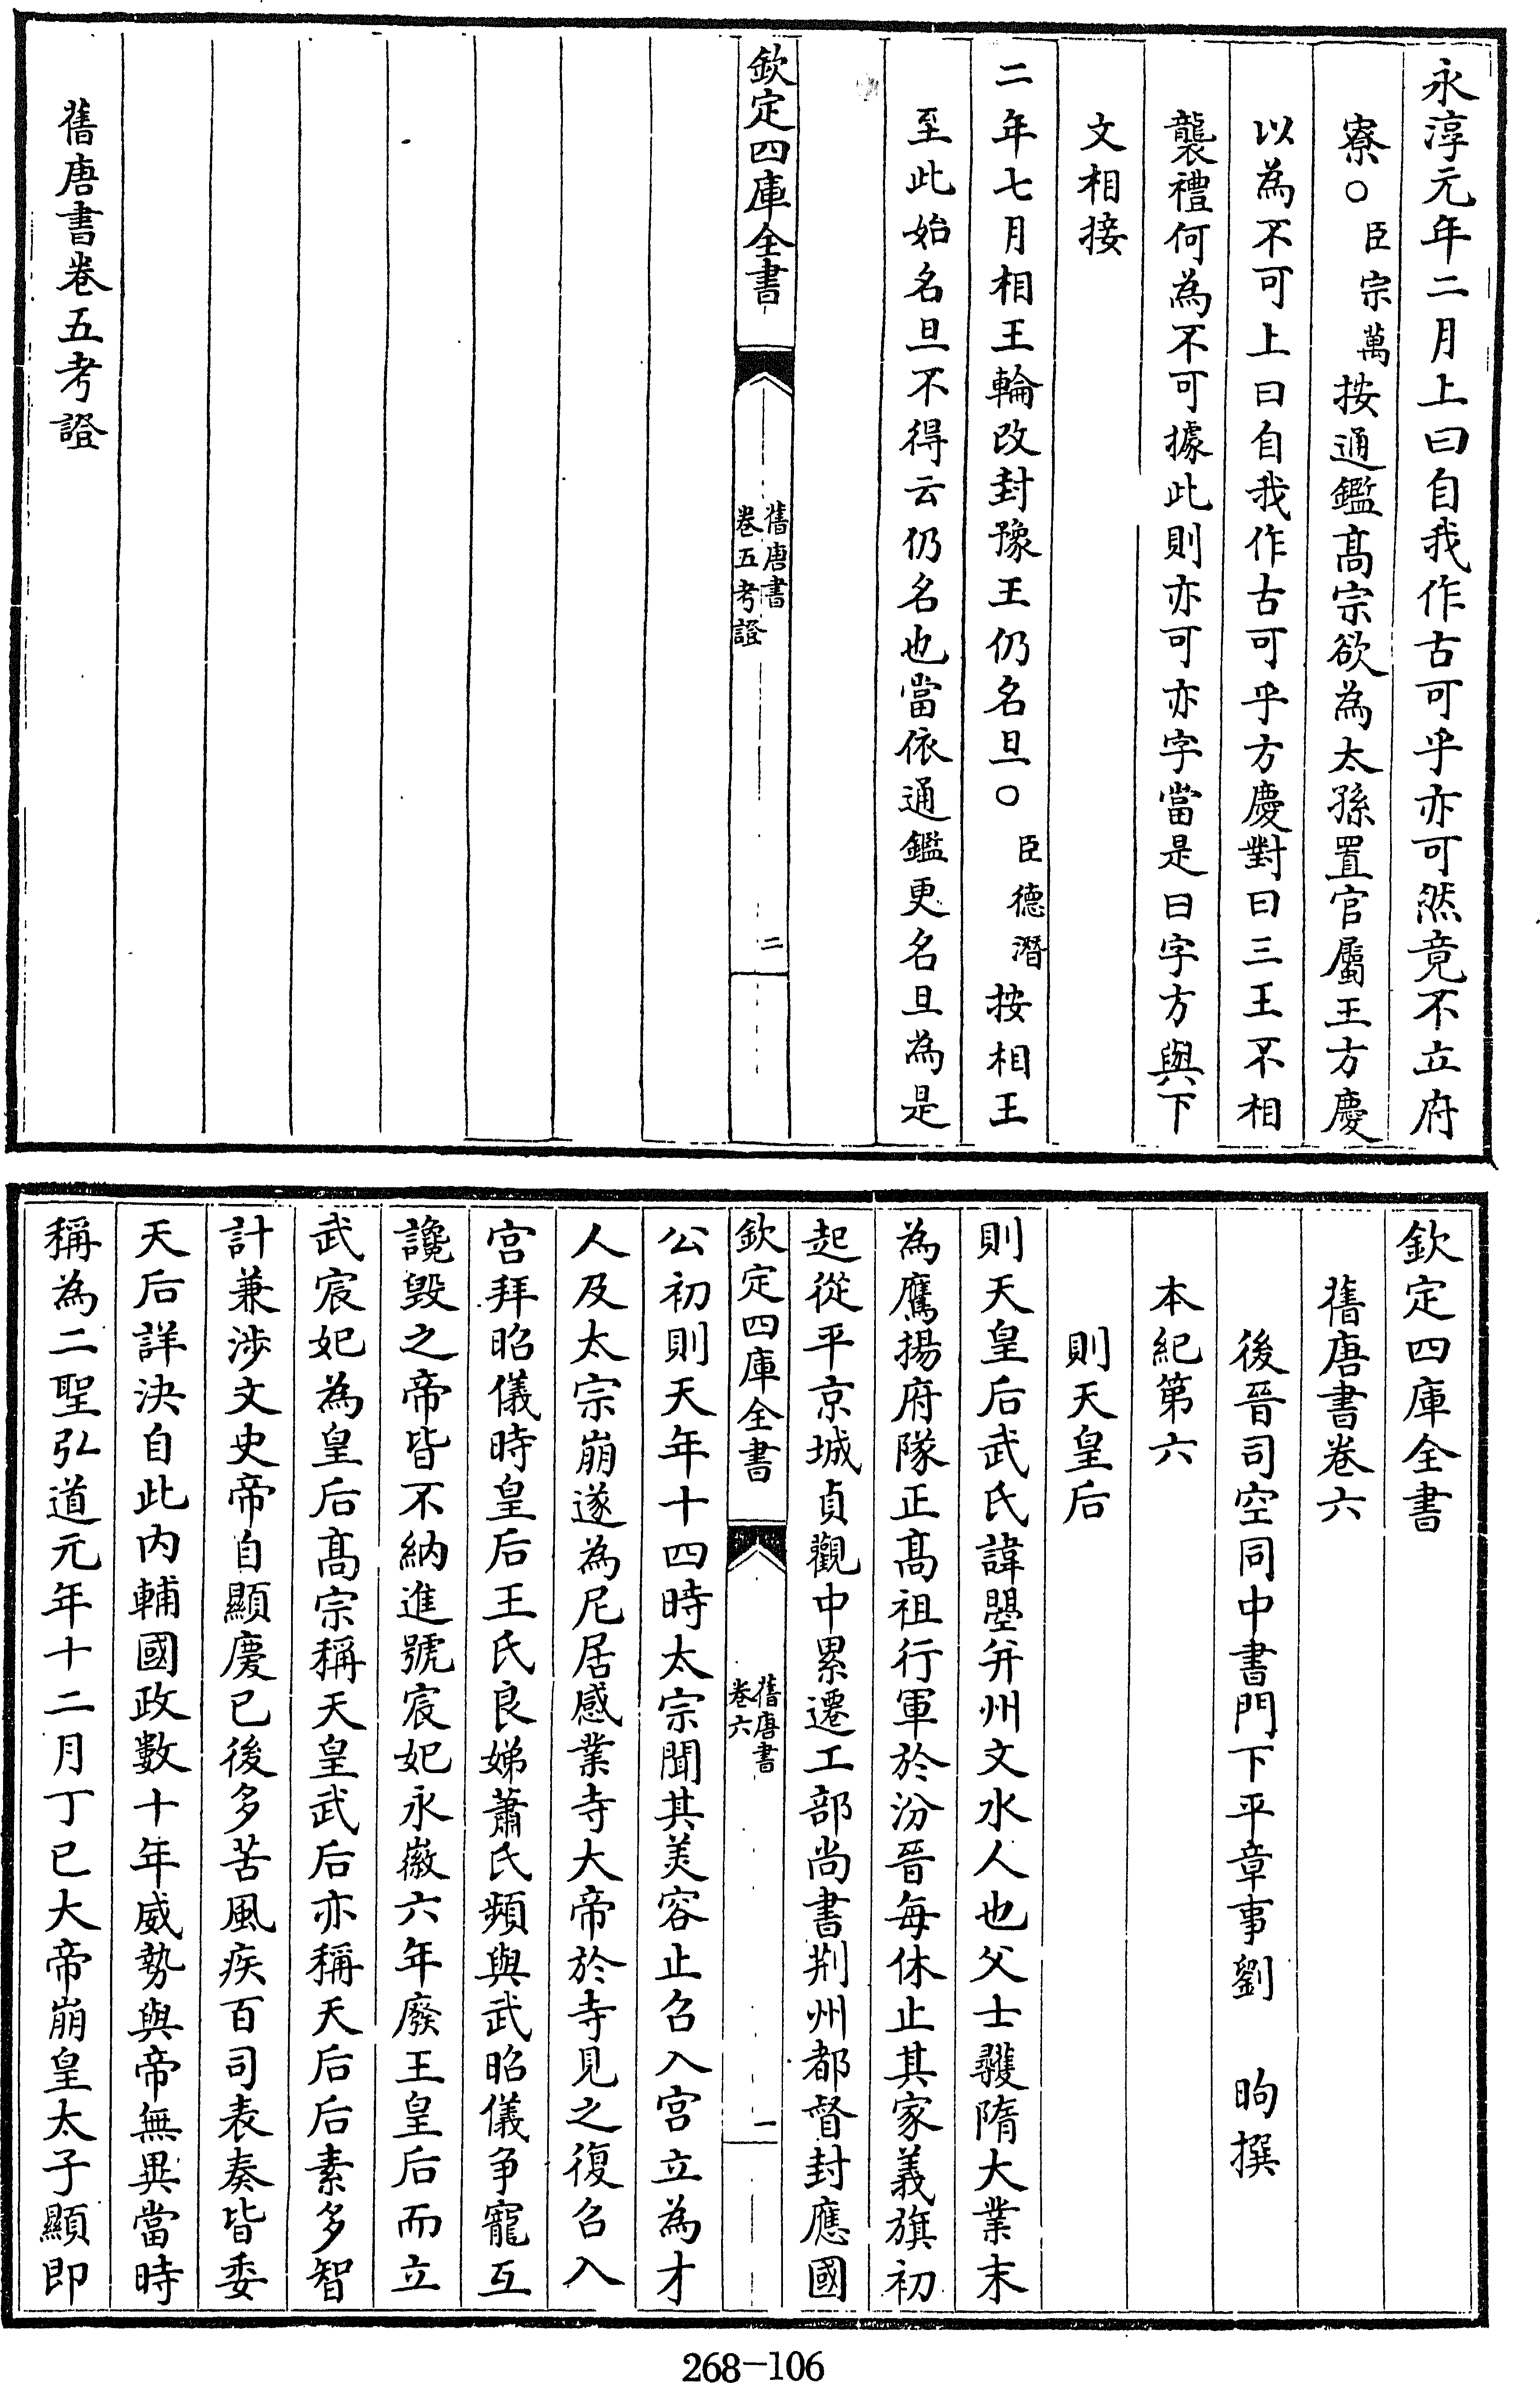 永淳元年二月上曰自我作古可乎亦可然竟不立府
寮○臣宗萬按通鑑高宗欲為太孫置官屬王方慶
以為不可上曰自我作古可乎方慶對曰三王不相
襲禮何為不可據此則亦可亦字當是曰字方與下
文相接
二年七月相王輪改封豫王仍名旦○臣德潛按相王
至此始名旦不得云仍名也當依通鑑更名旦為是
欽定四庫全書
舊唐書
卷五考證
二
舊唐書卷五考證
欽定四庫全書
舊唐書卷六
後晉司空同中書門下平章事劉　昫撰
本紀第六
則天皇后
則天皇后武氏諱曌并州文水人也父士彠隋大業末
為鷹揚府隊正高祖行軍於汾晉每休止其家義旗初
起從平京城貞觀中累遷工部尚書荆州都督封應國
欽定四庫全書
舊唐書
卷六
一
公初則天年十四時太宗聞其美容止召入宮立為才
人及太宗崩遂為尼居感業寺大帝於寺見之復召入
宮拜昭儀時皇后王氏良娣蕭氏頻與武昭儀爭寵互
讒毀之帝皆不納進號宸妃永徽六年廢王皇后而立
武宸妃為皇后高宗稱天皇武后亦稱天后后素多智
計兼涉文史帝自顯慶已後多苦風疾百司表奏皆委
天后詳決自此內輔國政數十年威勢與帝無異當時
稱為二聖弘道元年十二月丁巳大帝崩皇太子顯即
268-106